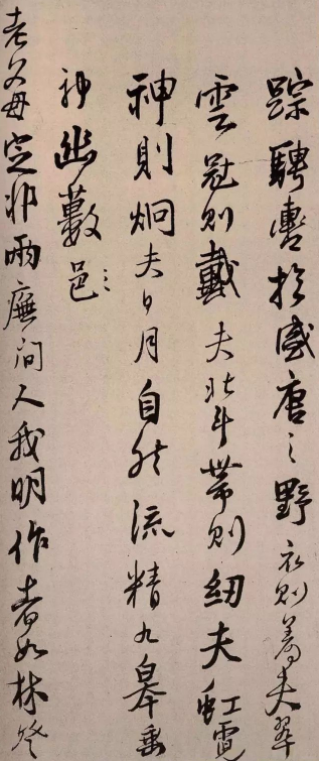 踪騁轡於盛唐之野衣則着夫翠
雲冠則戴夫北斗帶則紉夫虹霓
神則炯夫日月自然流精九皋垂
神幽藪邑〻
老父母定非兩廡間人我明作者如林登